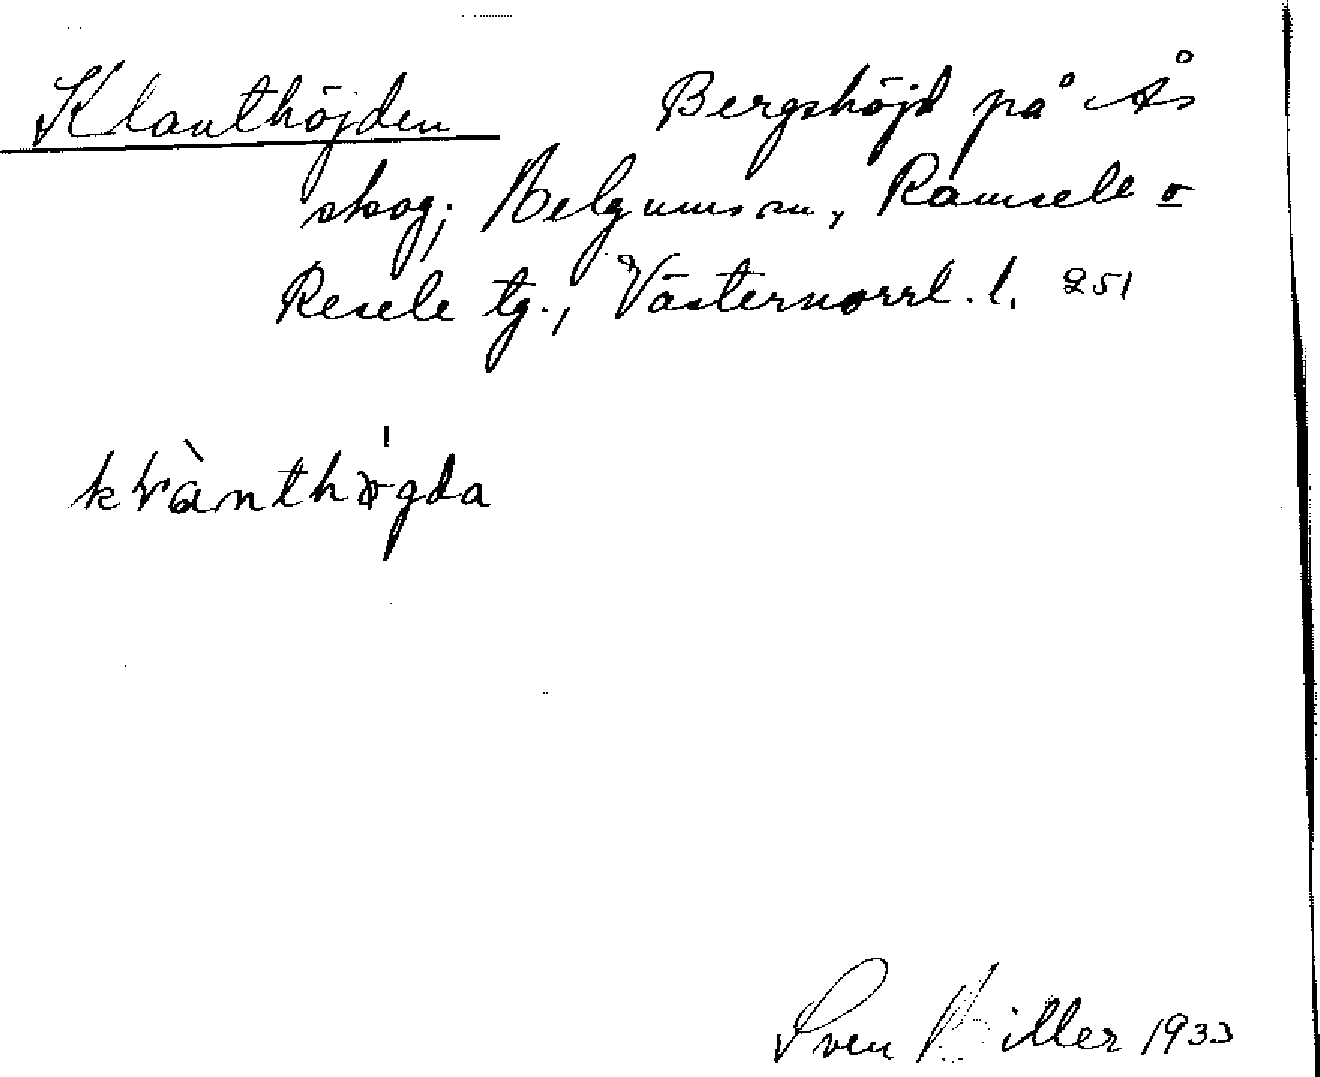 Klanthöjden Bergshöjd på Ås
skog; Helgums sn, Ramsele o
Resele tg., Västernorrl. l. 251
Sven Hiller 1933